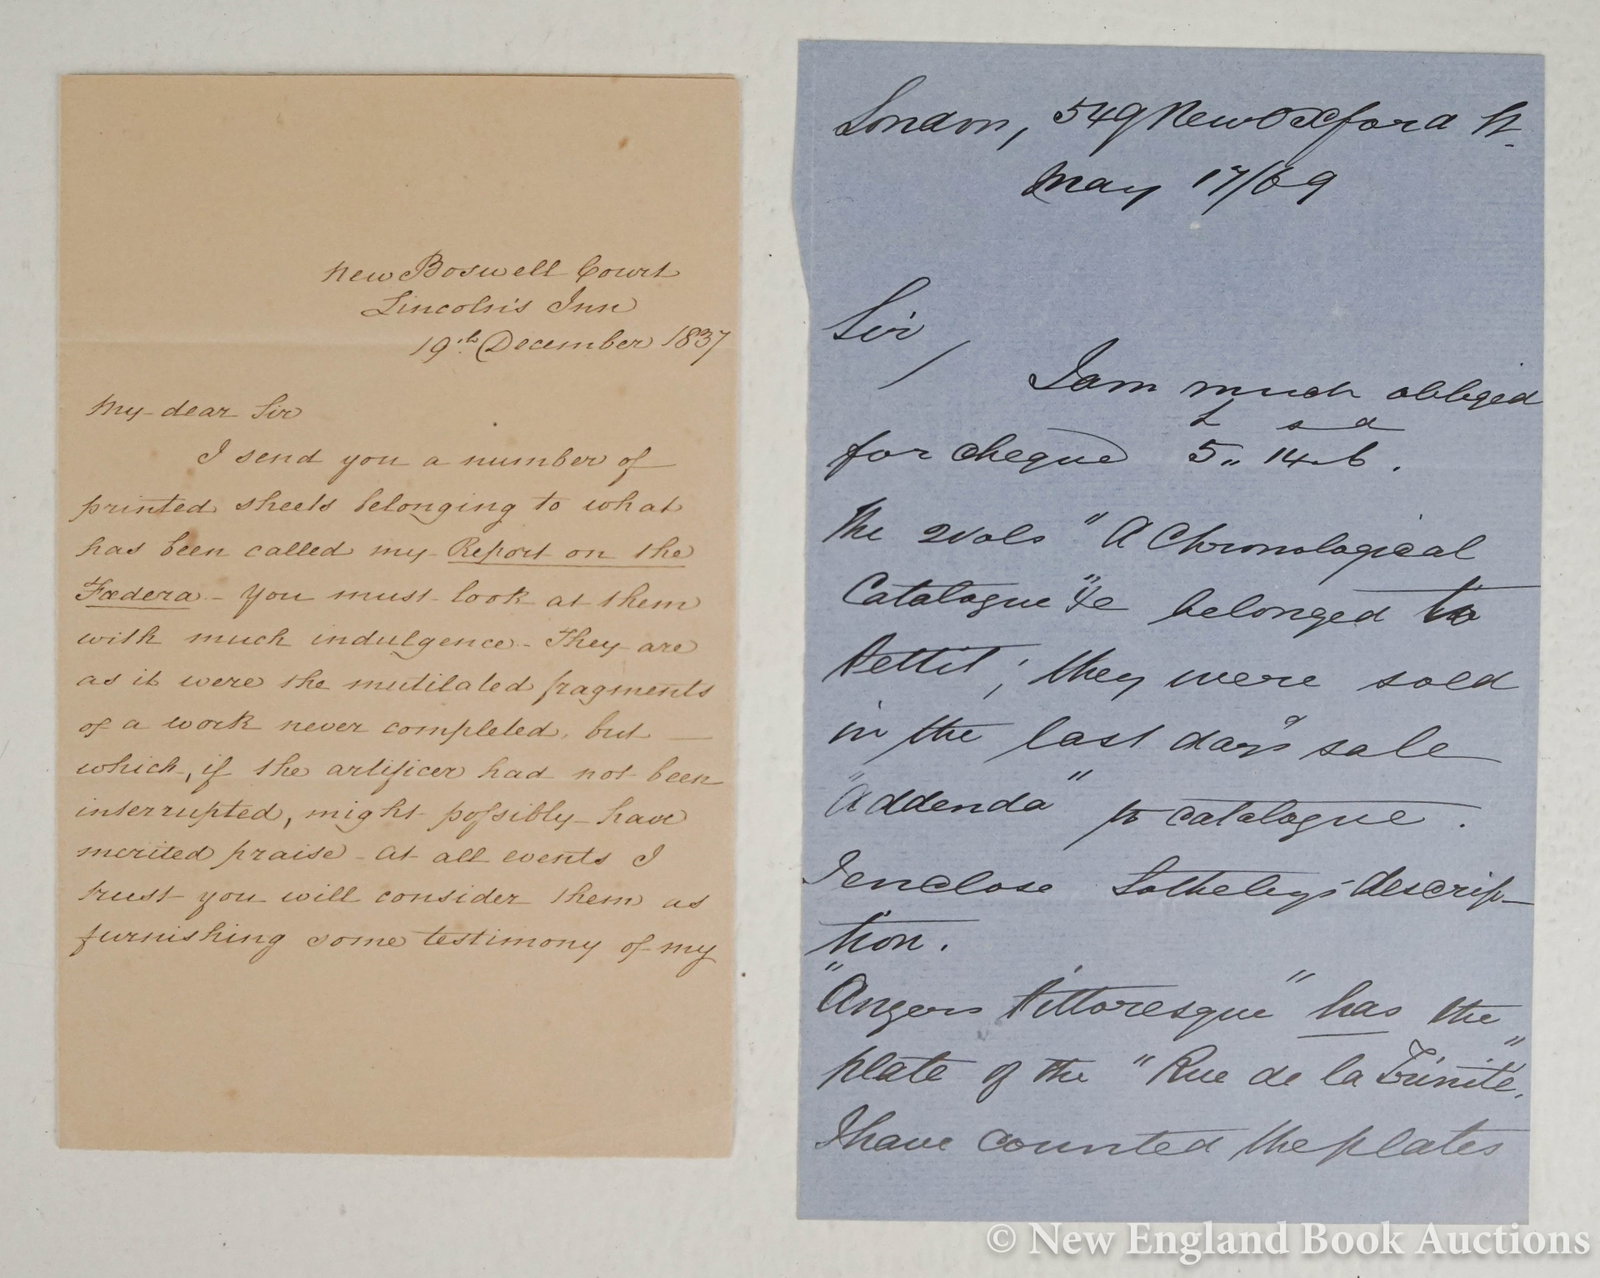 New Boswell Court
Lincoln's Inn
19th December 1837
My dear Sir
I send you a number of
printed sheets belonging to what
has been called my Report on the
Fœdera - You must look at them
with much indulgence - They are
as it were the mutilated fragments
of a work never completed, but
which, if the artificer had not been
interrupted, might possibly have
merited praise - At all events I
trust you will consider them as
furnishing some testimony of my
London, 549 New Oxford St.
May 17/69
Sir,
I am much obliged
£ s d
for cheque 5 „ 14 „ 6.
The 2 vols "A Chronological
Catalogue" &c belonged to
Pettit; they were sold
in the last day's sale
"Addenda" to catalogue.
I enclose Sotheby's descrip-
tion.
"Angers Pittoresque" has the
plate of the "Rue de la Trinité",
I have counted the plates
© New England Book Auctions